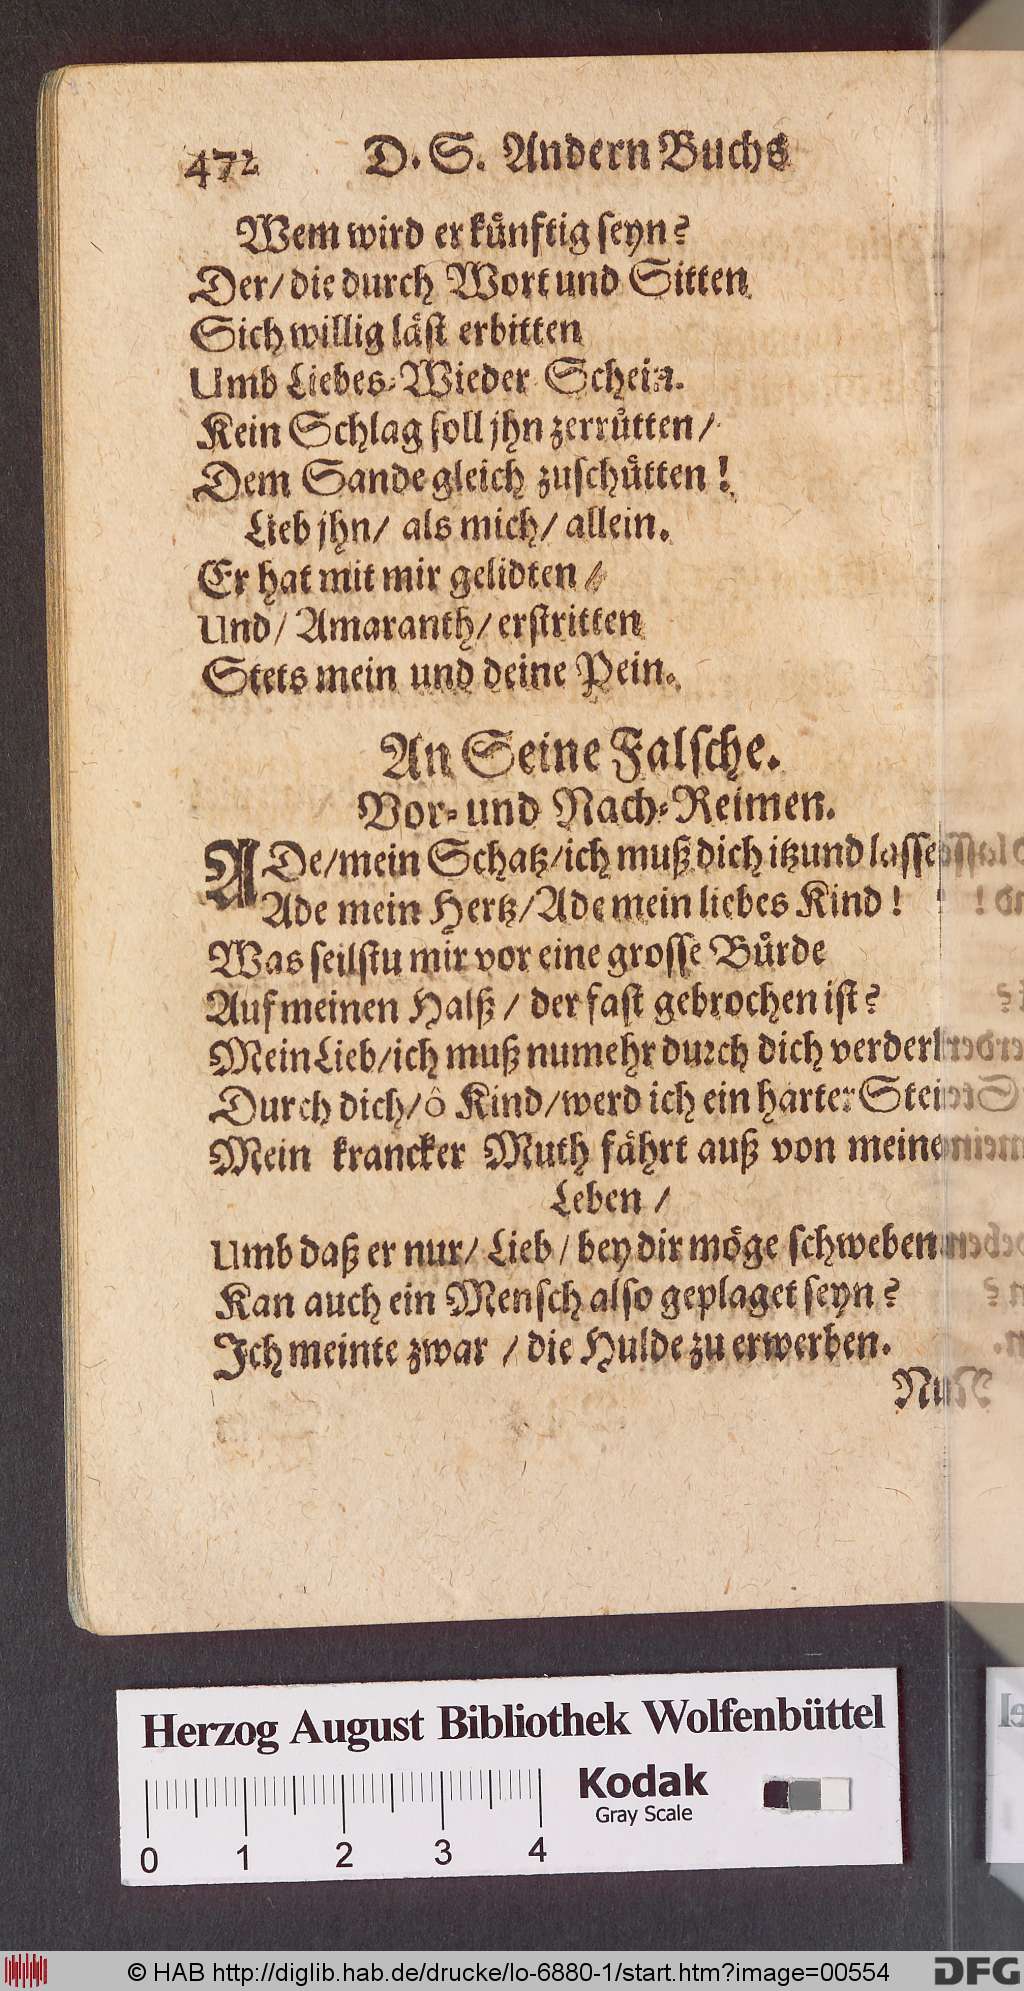 472 D. S. Andern Buchs
Wem wird er kuͤnftig ſeyn?
Der/ die durch Wort und Sitten
Sich willig laͤſt erbitten
Umb Liebes-Wieder Schein.
Kein Schlag ſoll jhn zerruͤtten/
Dem Sande gleich zuſchuͤtten!
Lieb jhn/ als mich/ allein.
Er hat mit mir gelidten/
Und/ Amaranth/ erſtritten
Stets mein und deine Pein.
An Seine Falſche.
Vor- und Nach-Reimen.
ADe/mein Schatz/ich muß dich itzund laſſe
Ade mein Hertz/Ade mein liebes Kind!
Was ſeilſtu mir vor eine groſſe Buͤrde
Auf meinen Halß / der faſt gebrochen iſt?
Mein Lieb/ich muß numehr durch dich verder
Durch dich/ô Kind/werd ich ein harter Stei
Mein krancker Muth faͤhrt auß von meine
Leben /
Umb daß er nur/ Lieb/ bey dir moͤge ſchweben
Kan auch ein Menſch alſo geplaget ſeyn?
Ich meinte zwar / die Hulde zu erwerben.
Nu
Herzog August Bibliothek Wolfenbüttel
Kodak
Gray Scale
0 1 2 3 4
© HAB http://diglib.hab.de/drucke/lo-6880-1/start.htm?image=00554
DFG